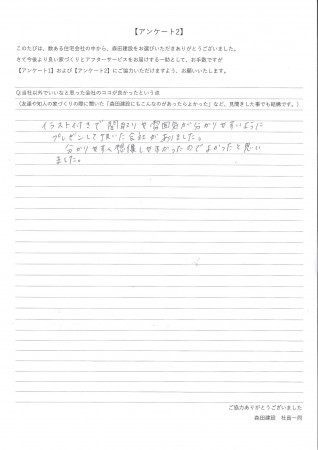 【アンケート2】
このたびは、数ある住宅会社の中から、森田建設をお選びいただきありがとうございました。
さて今後より良い家づくりとアフターサービスをお届けする一助として、お手数ですが
【アンケート1】および【アンケート2】にご協力いただけますよう、お願いいたします。
Q:当社以外でいいなと思った会社のココが良かったという点
（友達や知人の家づくりの際に聞いた「森田建設にもこんなのがあったらよかった」など、見聞きした事でも結構です。）
イラスト付きで間取りや雰囲気が分かりやすいように
プレゼンして頂いた会社がありました。
分かりやすく想像しやすかったのでよかったと思い
ました。
ご協力ありがとうございました
森田建設　社員一同